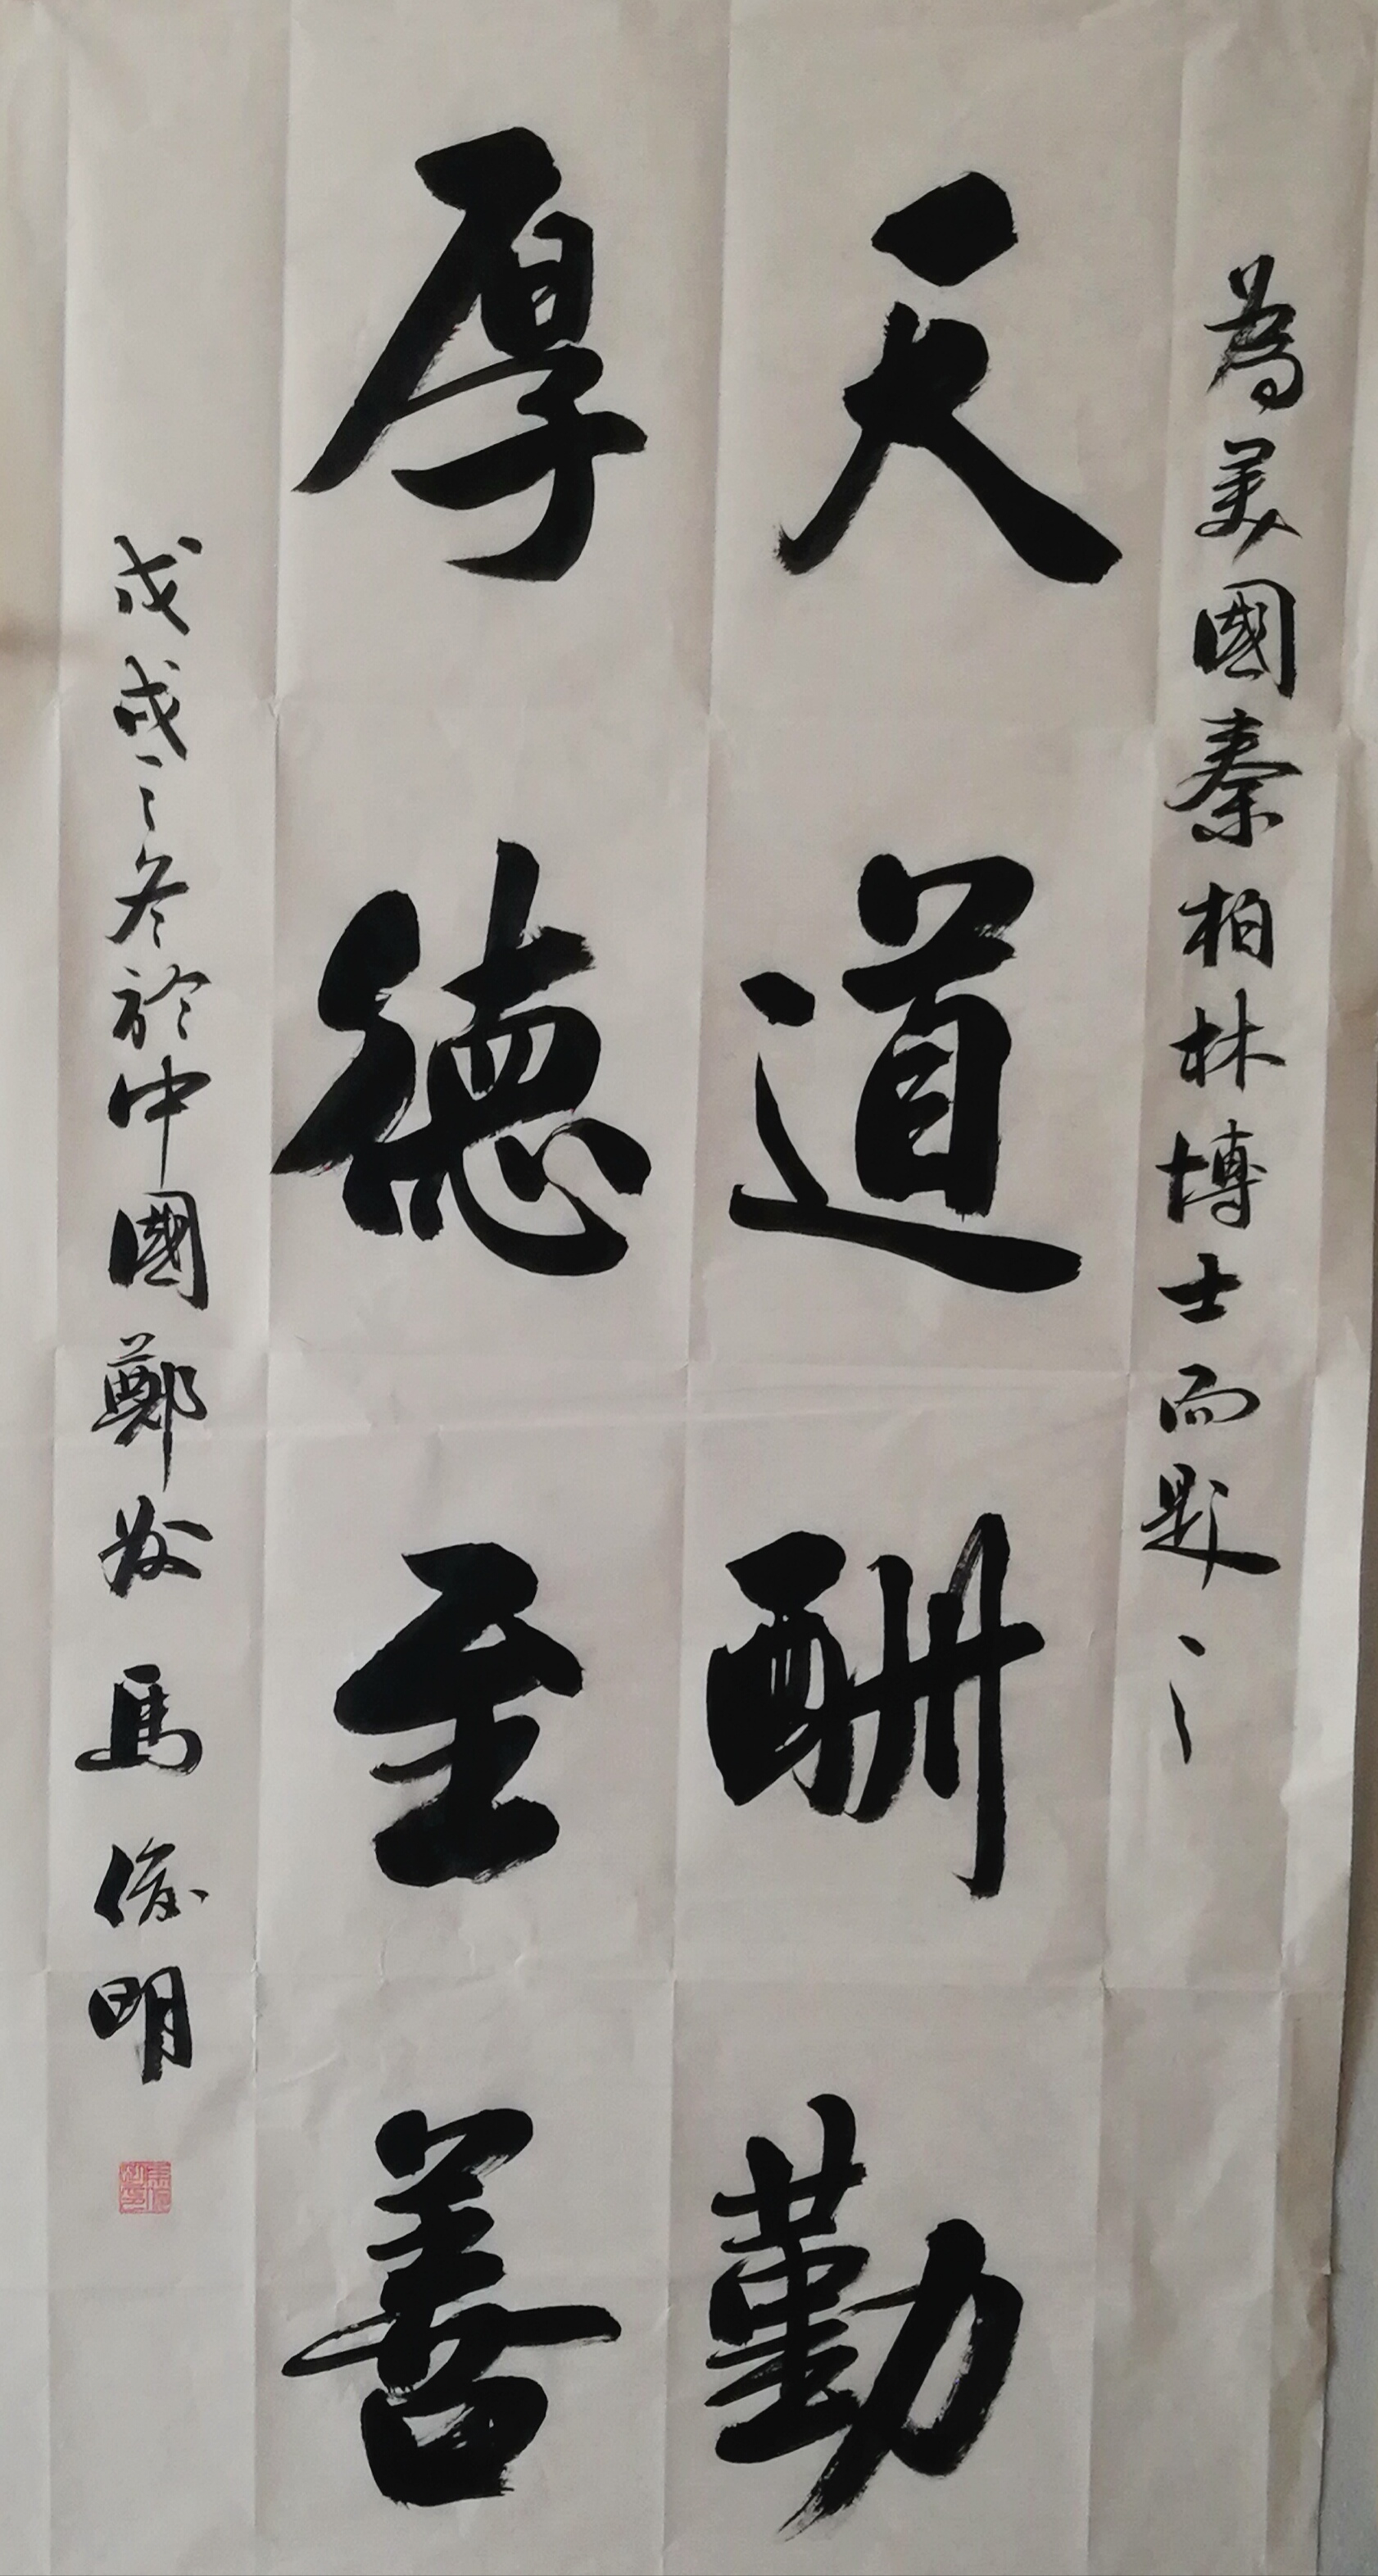 為美國秦柏林博士而題之
天道酬勤
厚德至善
戊戌之冬於中國鄭州馬俊明